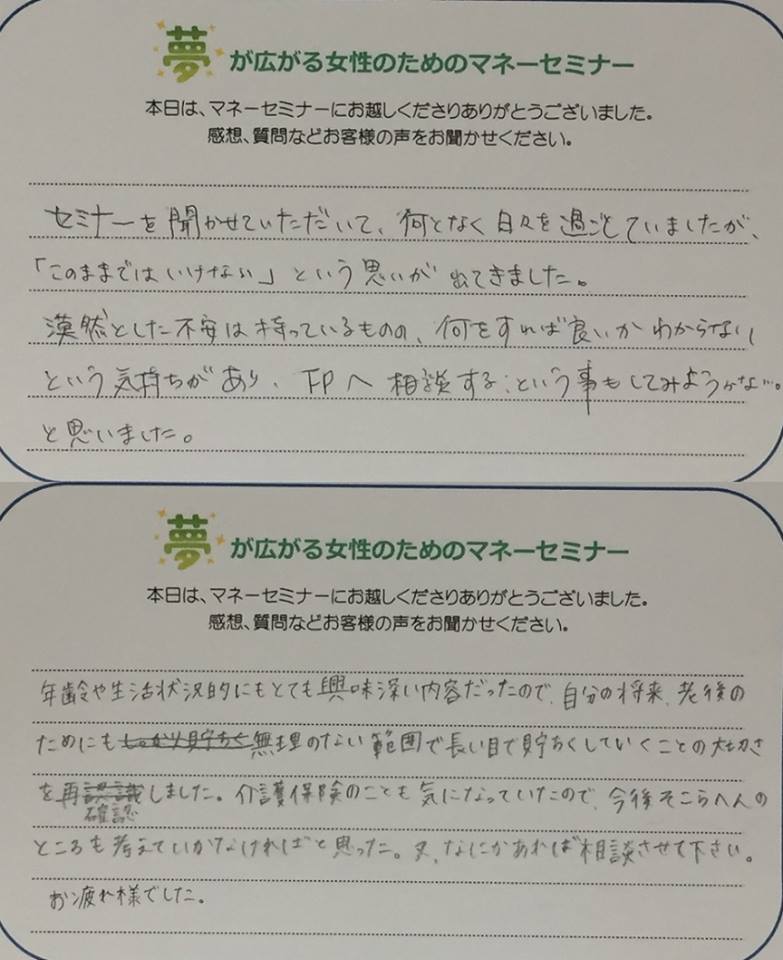 夢が広がる女性のためのマネーセミナー
本日は、マネーセミナーにお越しくださりありがとうございました。
感想、質問などお客様の声をお聞かせください。
セミナーを聞かせていただいて、何となく日々を過ごしていましたが、
「このままではいけない」という思いが出てきました。
漠然とした不安は持っているものの、何をすれば良いかわからない
という気持ちがあり、FPへ相談する、という事もしてみようかな…。
と思いました。
夢が広がる女性のためのマネーセミナー
本日は、マネーセミナーにお越しくださりありがとうございました。
感想、質問などお客様の声をお聞かせください。
年齢や生活状況的にもとても興味深い内容だったので、自分の将来、老後の
ためにもしっかり貯ちく無理のない範囲で長い目で貯ちくしていくことの大切さ
を再認識しました。介護保険のことも気になっていたので、今後そこらへんの
確認
ところも考えていかなければと思った。又、なにかあれば相談させて下さい。
お疲れ様でした。